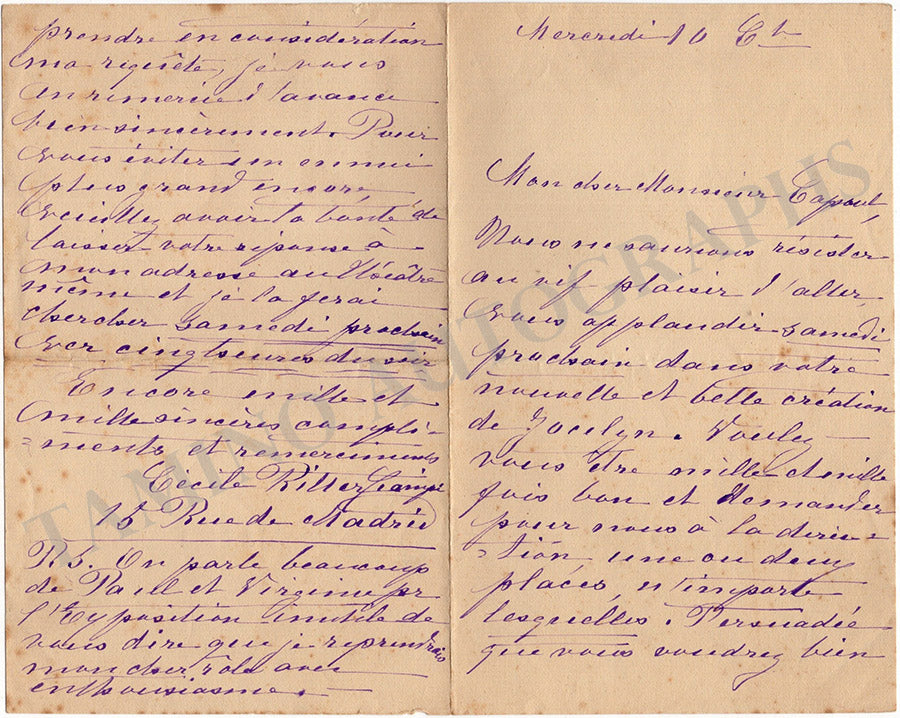 Mercredi 10 8b
Mon cher Monsieur Capoul,
Nous ne saurions résister
au vif plaisir d'aller
vous applaudir samedi
prochain dans votre
nouvelle et belle création
de Jocelyn. Voulez-
vous être mille et mille
fois bon et demander
pour nous à la direc-
-tion une ou deux
places, n'importe
lesquelles. Persuadée
que vous voudrez bien
prendre en considération
ma requête, je vous
en remercie d'avance
bien sincèrement. Pour
vous éviter un ennui
plus grand encore
veuillez avoir la bonté de
laisser votre réponse à
mon adresse au théâtre
même et je la ferai
chercher samedi prochain
ver cinq heures du soir
Encore mille et
mille sincères compli-
-ments et remerciements
Cécile Ritter Ciampi
15 Rue de Madrid
PS. On parle beaucoup
de Paul et Virginie pr
l'Exposition inutile de
vous dire que je reprendrais
mon cher rôle avec
enthousiasme.
TAMINO AUTOGRAPHS